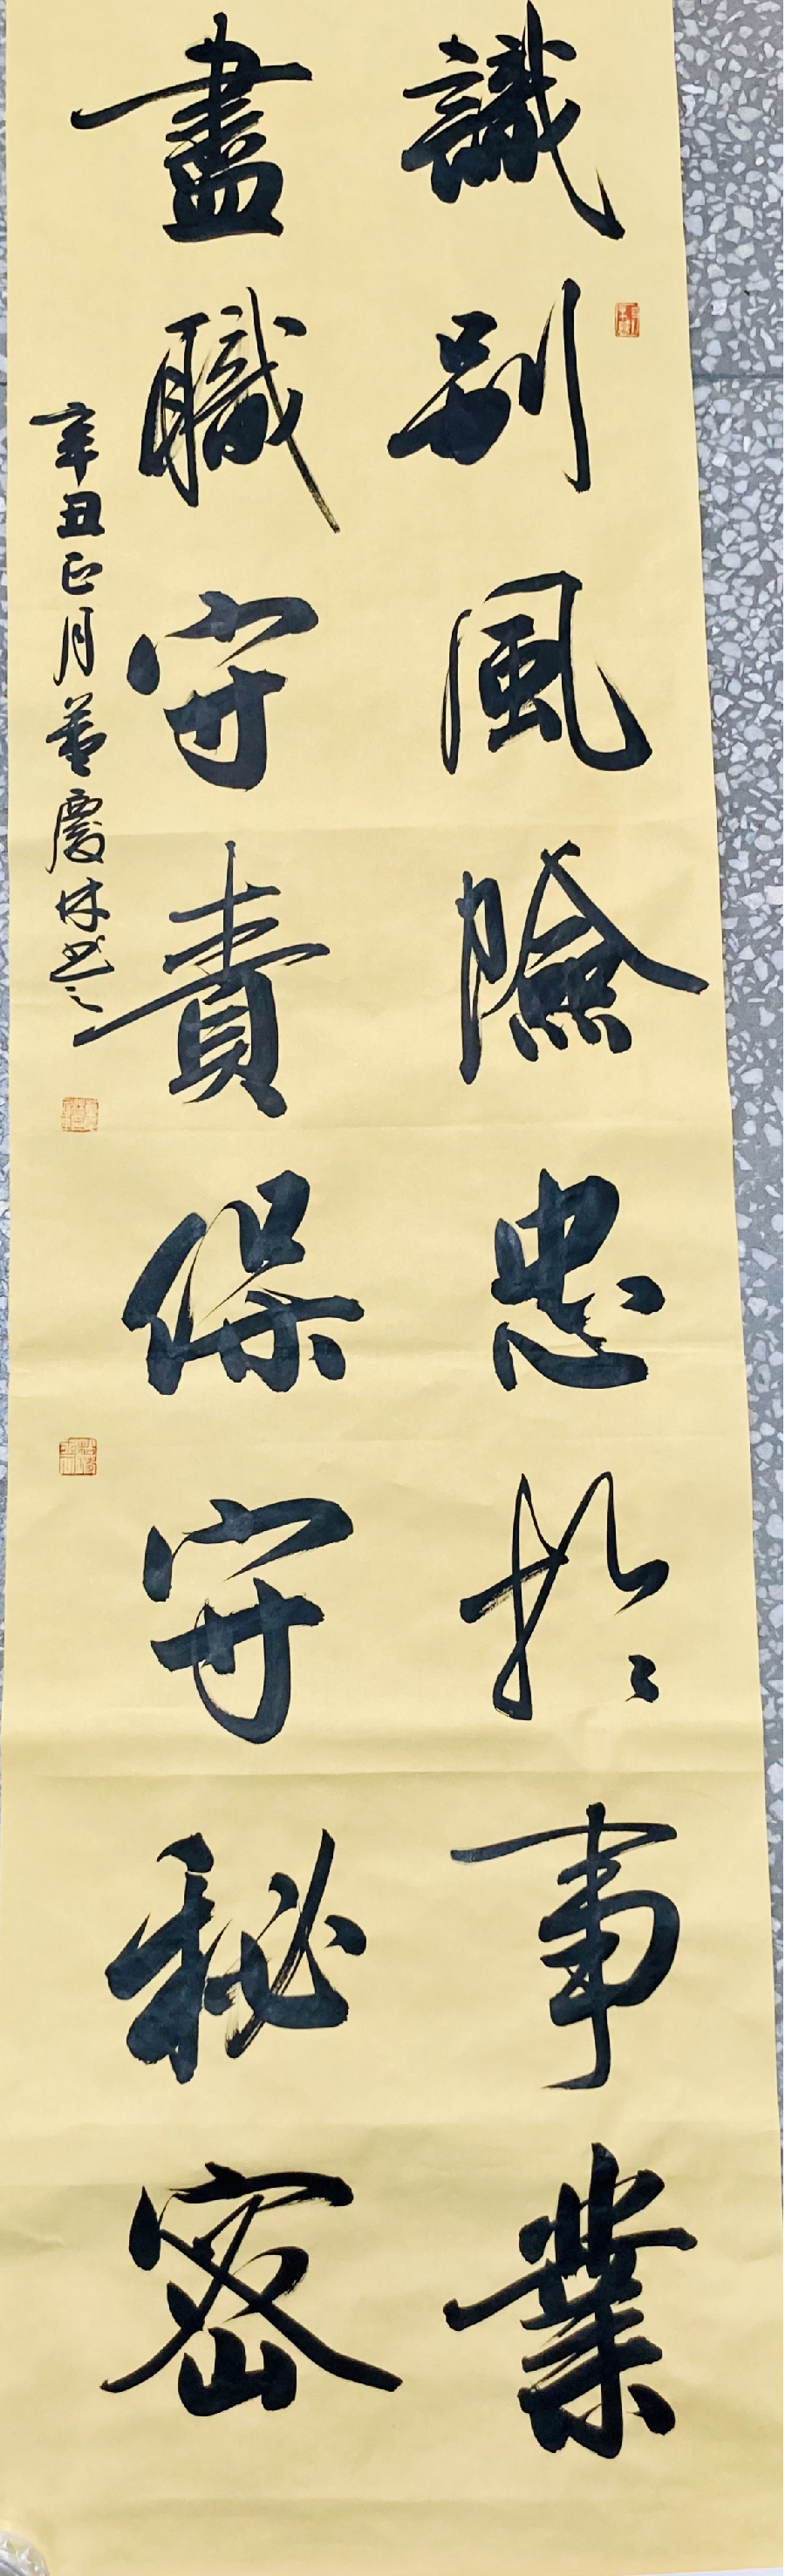 識別風險忠於事業
盡職守責保守秘密
辛丑正月董慶林書之